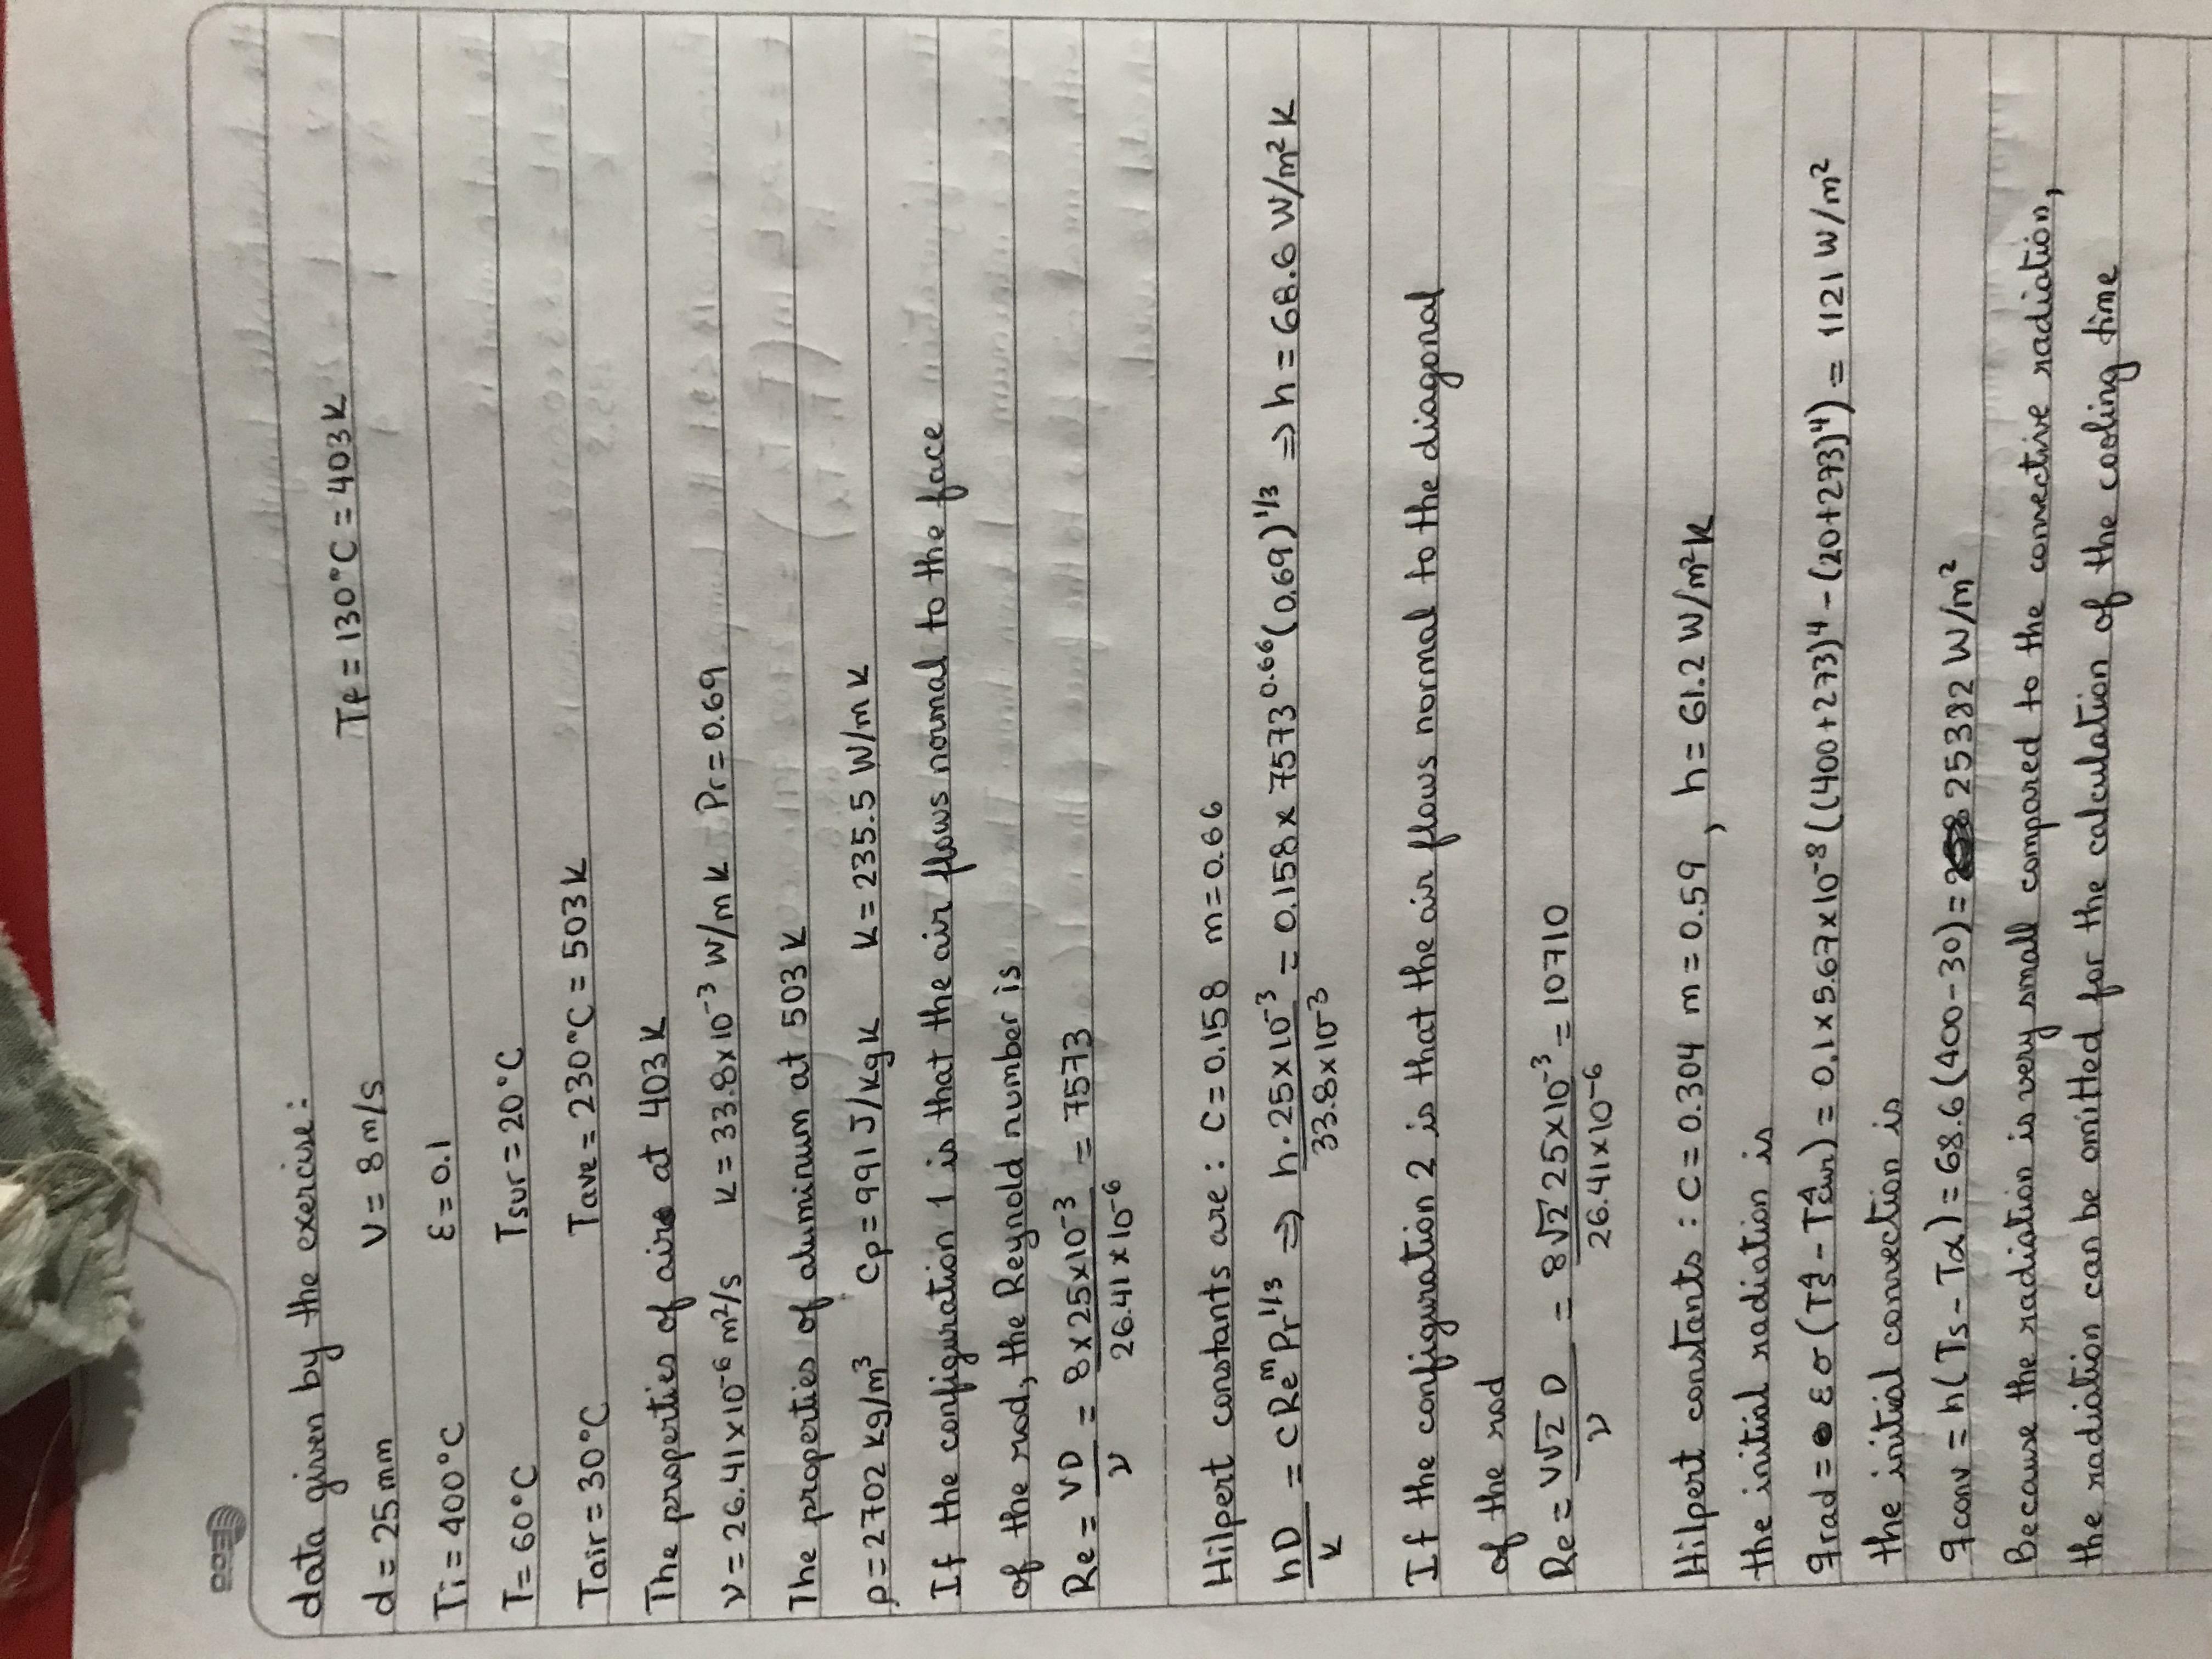 data given by the exercise:
d = 25 mm V = 8 m/s Tf = 130°C = 403 K
Ti = 400°C ε = 0.1
T = 60°C Tsur = 20°C
Tair = 30°C Tave = 230°C = 503 K
The properties of air at 403 K
ν = 26.41 x 10⁻⁶ m²/s K = 33.8x10⁻³ W/m K Pr = 0.69
The properties of aluminum at 503 K
ρ = 2702 kg/m³ Cp = 991 J/kg K K = 235.5 W/m K
If the configuration 1 is that the air flows normal to the face
of the rod, the Reynold number is
Re = VD/ν = 8 x 25x10⁻³/26.41 x 10⁻⁶ = 7573
Hilpert constants are : C = 0.158 m = 0.66
hD/K = C Reᵐ Pr¹/³ ⇒ h.25x10⁻³/33.8x10⁻³ = 0.158 x 7573⁰·⁶⁶ (0.69)¹/³ ⇒ h = 68.6 W/m² K
If the configuration 2 is that the air flows normal to the diagonal
of the rod
Re = V√2 D/ν = 8√2 25x10⁻³/26.41x10⁻⁶ = 10710
Hilpert constants : C = 0.304 m = 0.59 , h = 61.2 W/m² K
the initial radiation is
qrad = ε σ (Ts⁴ - Tsur⁴) = 0.1 x 5.67 x 10⁻⁸ ((400+273)⁴ - (20+273)⁴) = 1121 W/m²
the initial convection is
qconv = h(Ts - Tα) = 68.6 (400-30) = 25382 W/m²
Because the radiation is very small compared to the convective radiation,
the radiation can be omitted for the calculation of the cooling time